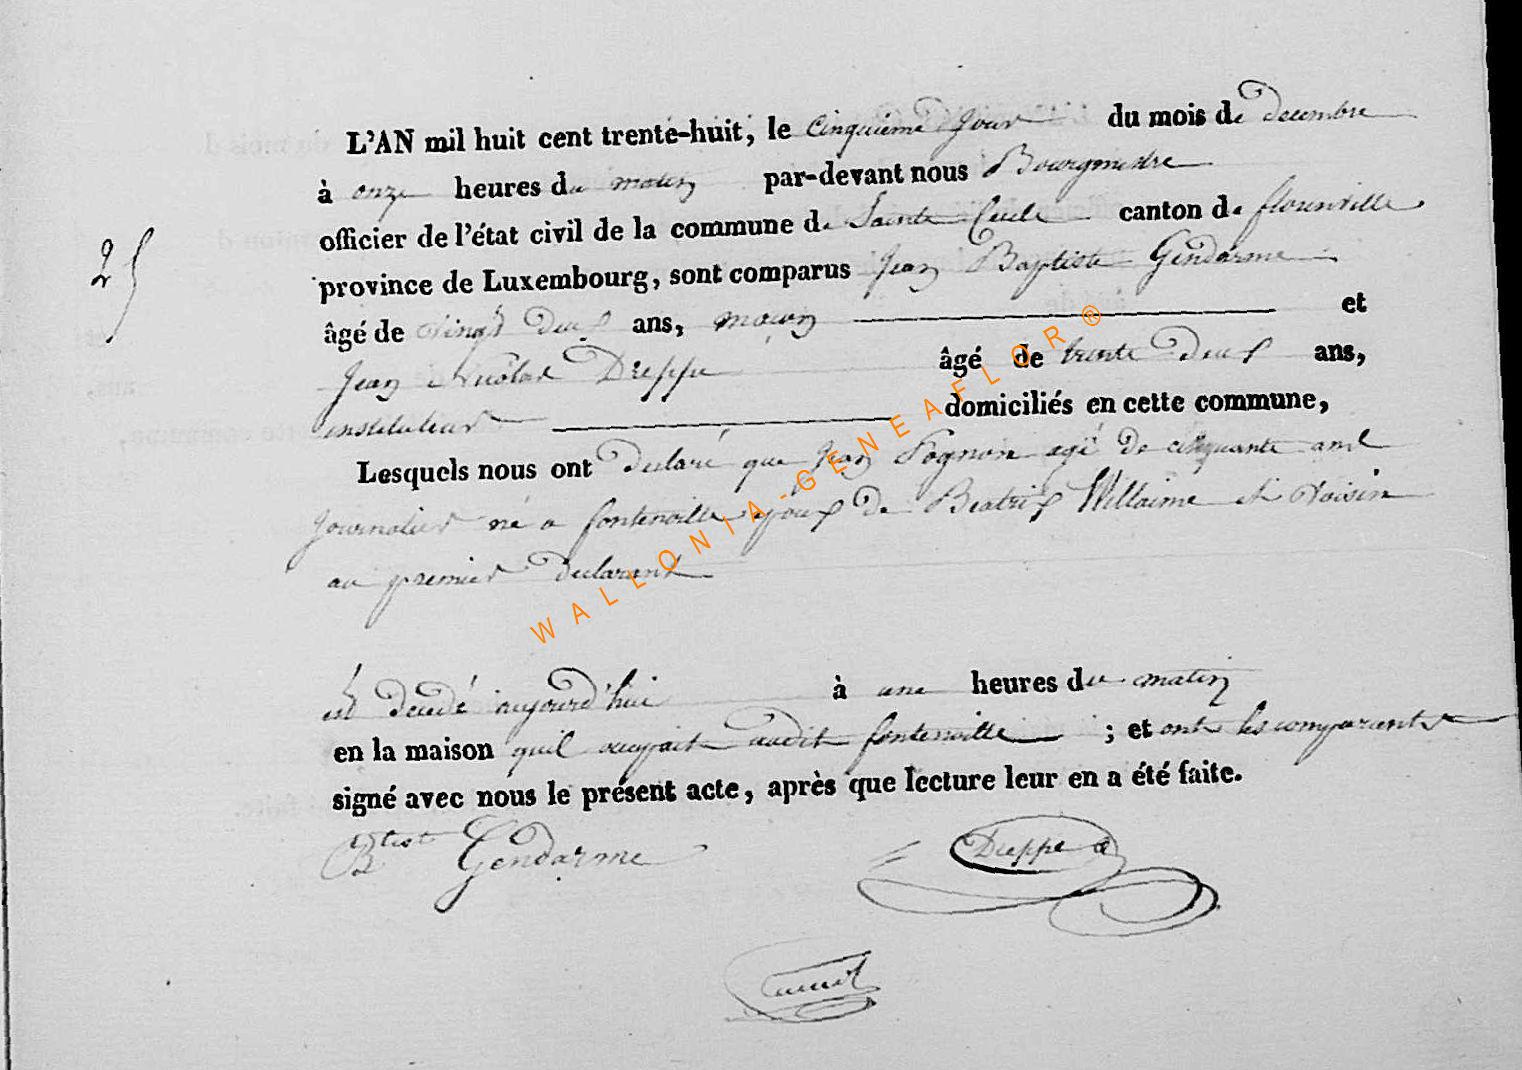 L'AN mil huit cent trente-huit, le cinquieme jour du mois de decembre
à onze heures du matin par-devant nous Bourgmestre
officier de l'état civil de la commune de Sainte Cecile canton de florenville
province de Luxembourg, sont comparus Jean Baptiste Gendarme
25
âgé de vingt deux ans, maçon et
Jean Nicolas Dreppe âgé de trente deux ans,
instituteur domiciliés en cette commune,
Lesquels nous ont declaré que Jean Pognon agé de cinquante ans
journalier né a fontenoille epoux de Beatrix Willaime et voisin
au premier declarant
est decedé aujourd'hui à une heures du matin
en la maison quil occupait audit fontenoille ; et ont les comparants
signé avec nous le présent acte, après que lecture leur en a été faite.
Btist Gendarme Dreppe
WALLONIA-GENEAFLOR®